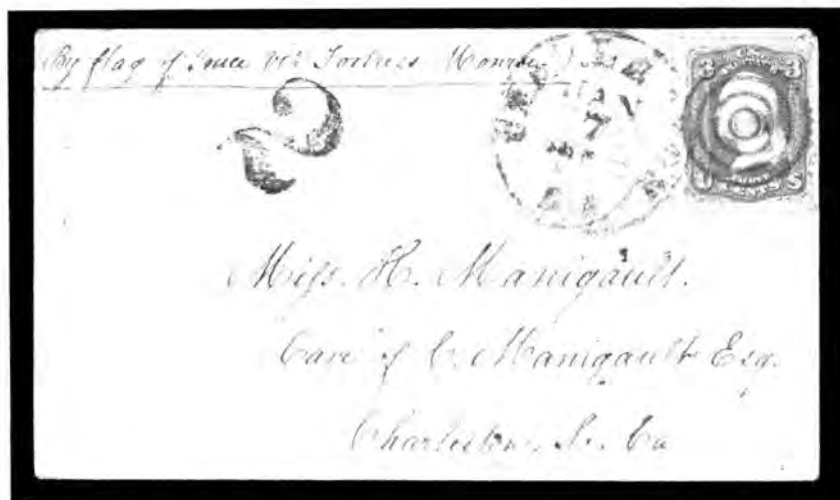 By flag of truce via Fortress Monroe
2
JAN
7
3 3
U S
Miss. H. Manigault.
Care of C. Manigault Esq.
Charleston, So. Ca